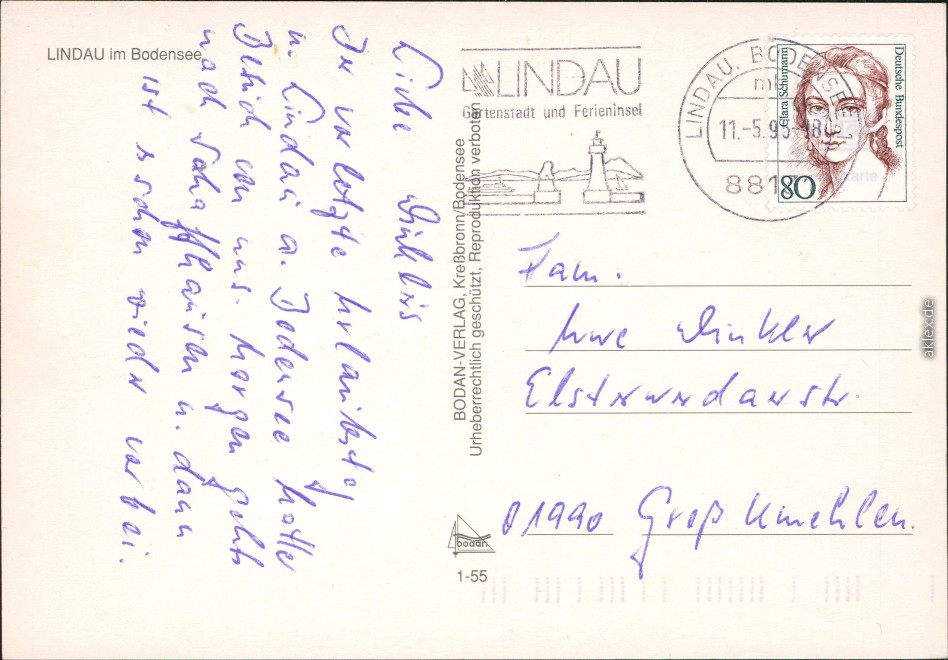 LINDAU im Bodensee
Liebe Winklers
Der vorletzte Urlaubstag
u. Lindau a. Bodensee hatte
Besuch von uns. Morgen gehts
nach Schaffhausen u. dann
ist schon wieder vorbei.
BODAN-VERLAG, Kreßbronn/Bodensee
Urheberrechtlich geschützt, Reproduktion verboten
bodan
1-55
LINDAU
Gartenstadt und Ferieninsel
LINDAU, BODENSEE 1
11.-5.95-18
8813
Clara Schumann
Deutsche Bundespost
80
Fam.
Uwe Winkler
Elsterwerdaerstr.
01990 Großkmehlen.
aklex.de